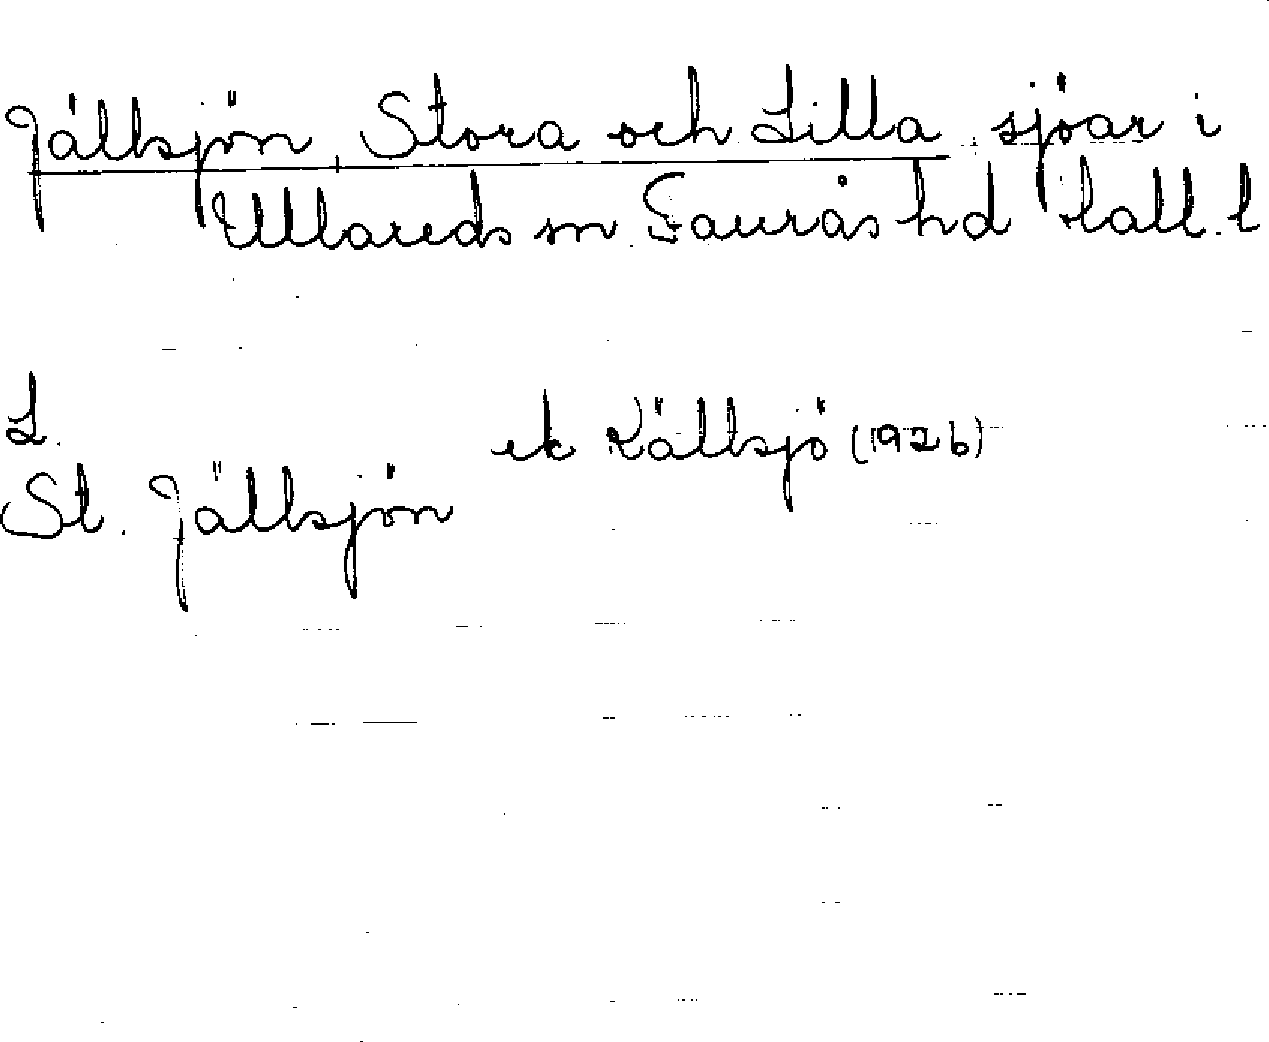 Jällsjön, Stora och Lilla sjöar i
Ullareds sn Faurås hd Hall. l
L.
ek Källsjö (1926)
St. Jällsjön